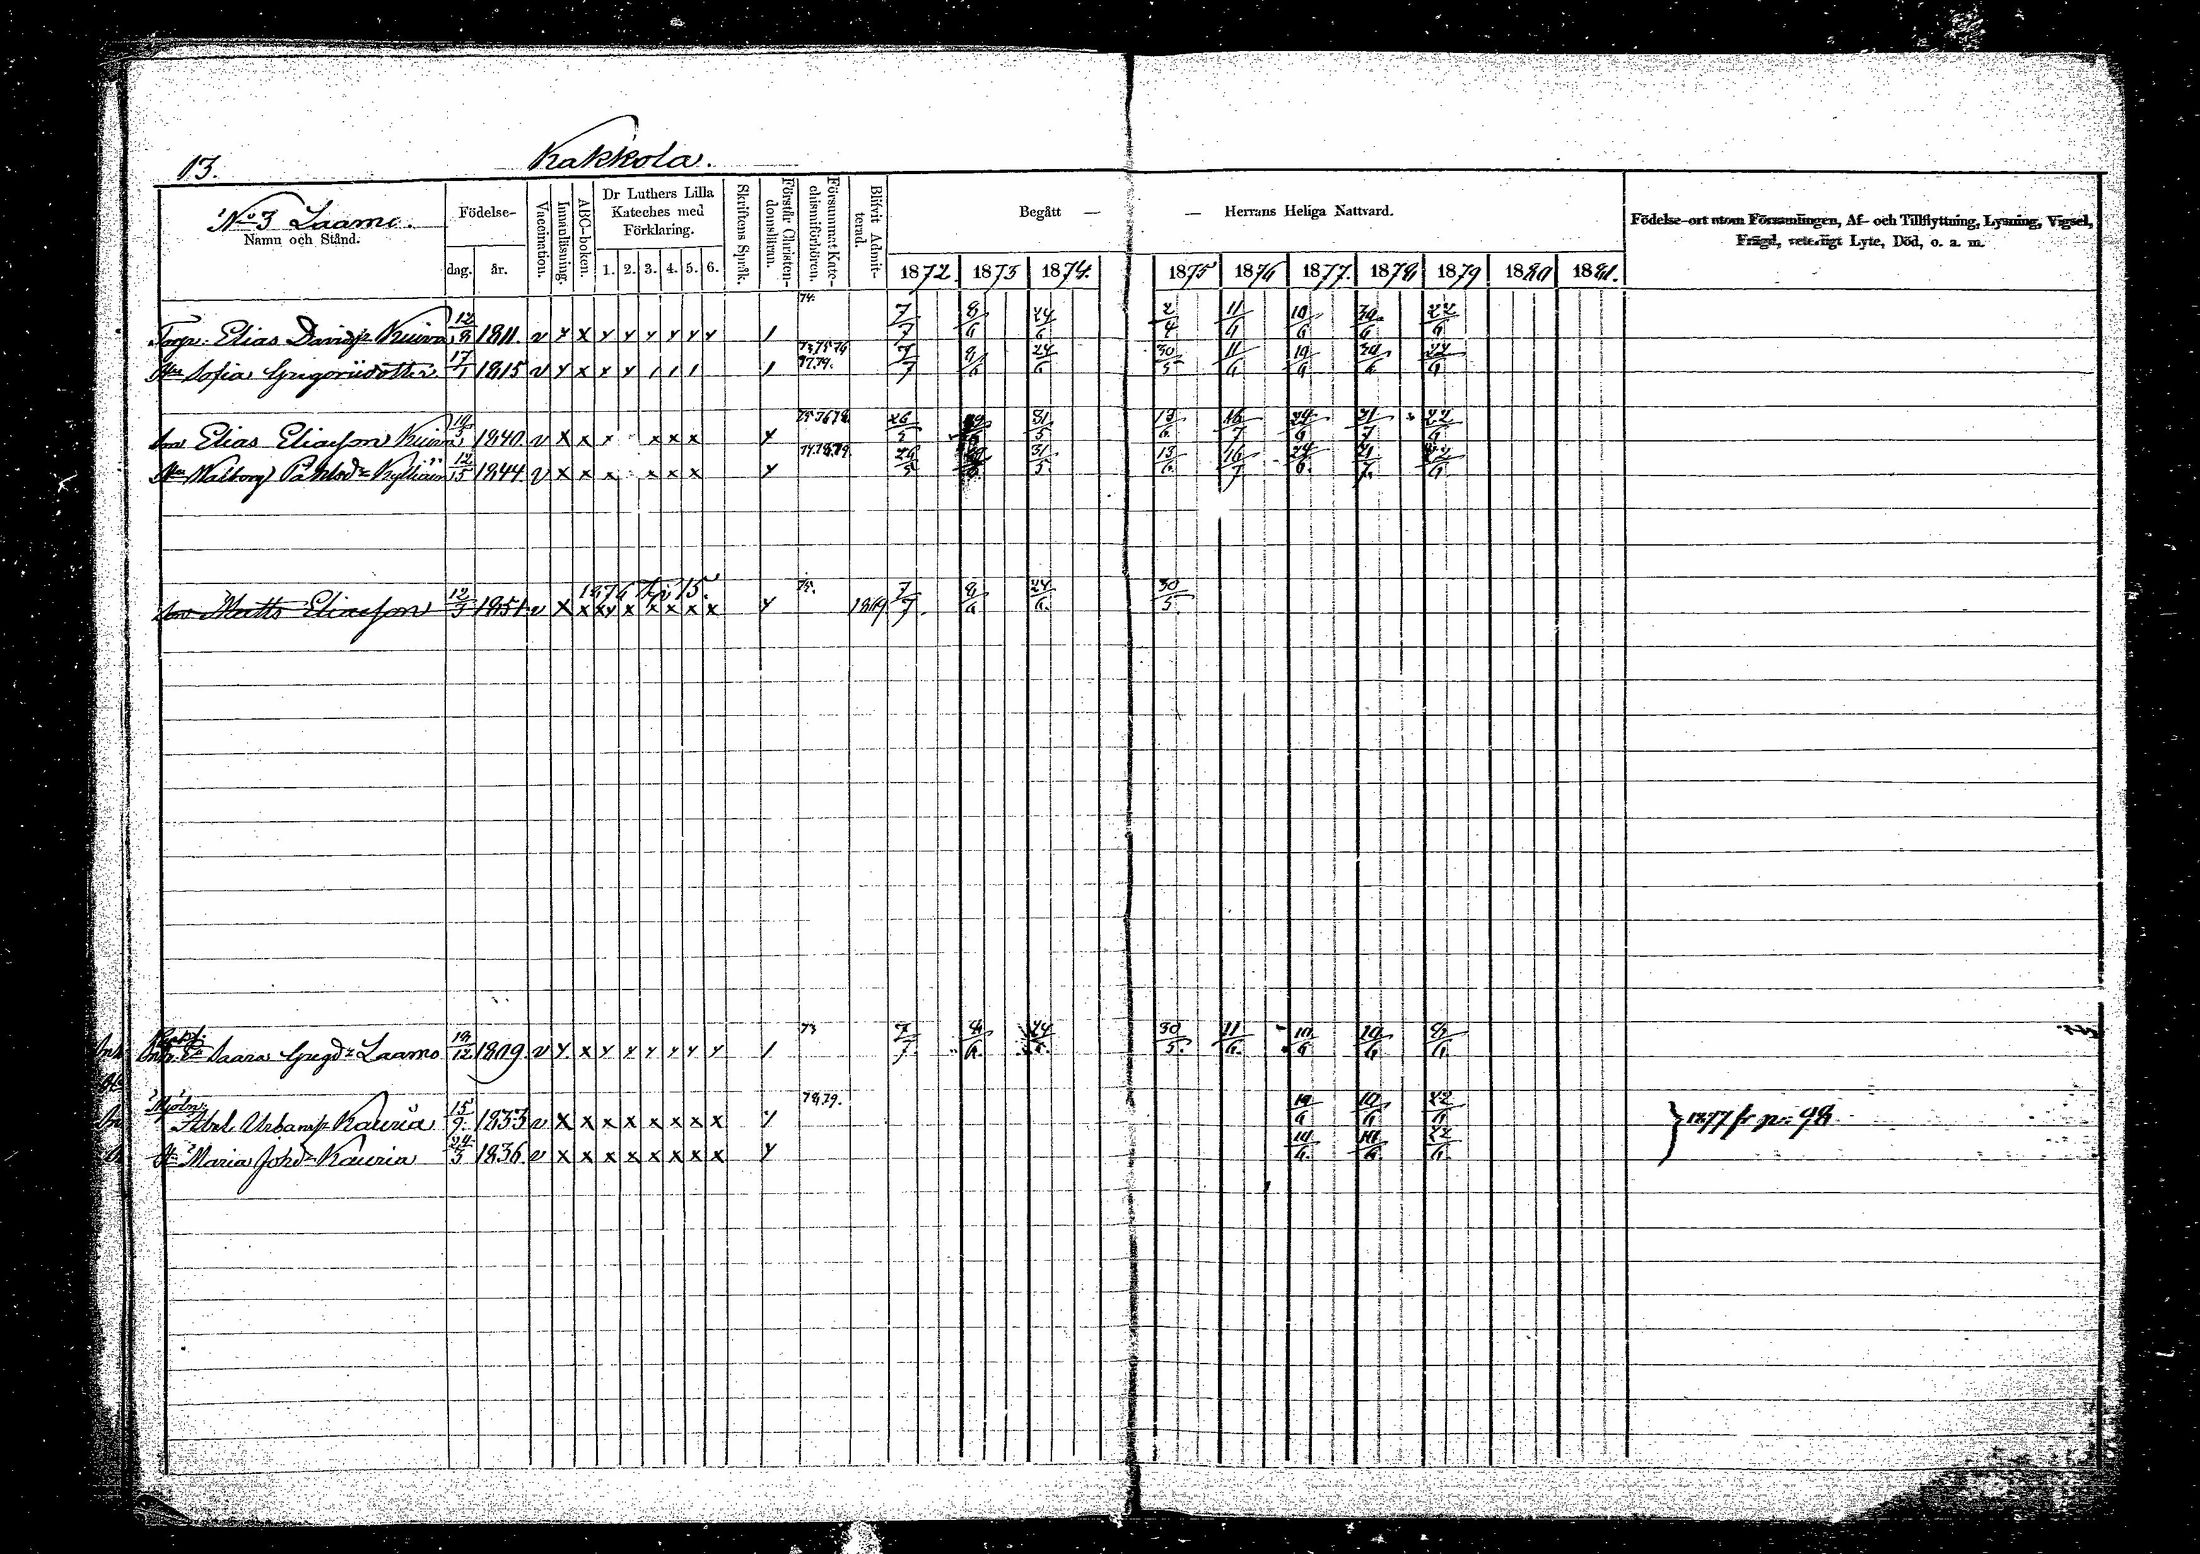 13. Kakkola.
No 3 Laamo.
Namn och Stånd.
Födelse-
dag. år.
Vaccination.
Innanläsning.
ABC-boken.
Dr Luthers Lilla
Kateches med
Förklaring.
1. 2. 3. 4. 5. 6.
Skriftens Språk.
Förstår Christen-
domsläran.
Försummat Kate-
chismiförhören.
Blifvit Admit-
terad.
Begått — — Herrans Heliga Nattvard.
1872. 1873 1874. 1875 1876 1877. 1878 1879 1880 1881.
Födelse-ort utom Församlingen, Af- och Tillflyttning, Lysning, Vigsel,
Frägd, veterligt Lyte, Död, o. a. m.
74.
Elias Davidsr 1811. v x x y y y y y y 1 7/7 8/6 24/6 2/4 11/6 10/6 30/6 22/6
Hu Sofia Grigoriidotter 17/1 1815 v y x x y 1 1 1 1 7/7 8/6 24/6 30/5 11/6 10/6 30/6 22/6
Son Elias Eliasson 1840. v x x x x x x y 26/5 31/5 13/6 16/7 24/6 21/7 22/6
Hu Walborg 1844 v x x x x x x y 26/5 31/5 13/6 16/7 24/6 21/7 22/6
1876 75.
Son Matts Eliasson 12/3 1851 v x x x y x x x x x y 1869 7/7 8/6 24/6 30/5
73
Enk. Saara Gregdr Laamo 19/12 1809 v y x y y y y y y 1 7/7 8/6 24/6 30/5 11/6 10/6 10/6 8/6
Mjöln. 78,79.
Abel Urbansr Kauria 15/9 1833 v x x x x x x x x y 10/6 10/6 22/6 1877 fr p. 98
Hu Maria Johdr Kauria 24/3 1836 v x x x x x x x x y 10/6 10/6 22/6